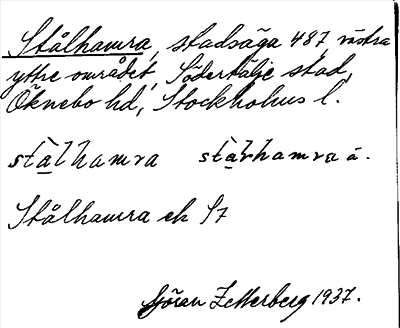 Stålhamra, stadsäga 487, västra
yttre området, Södertälje stad,
Öknebo hd, Stockholms l.
stàlhamra stàrhamra ä.
Stålhamra ek 57
Göran Zetterberg 1937.